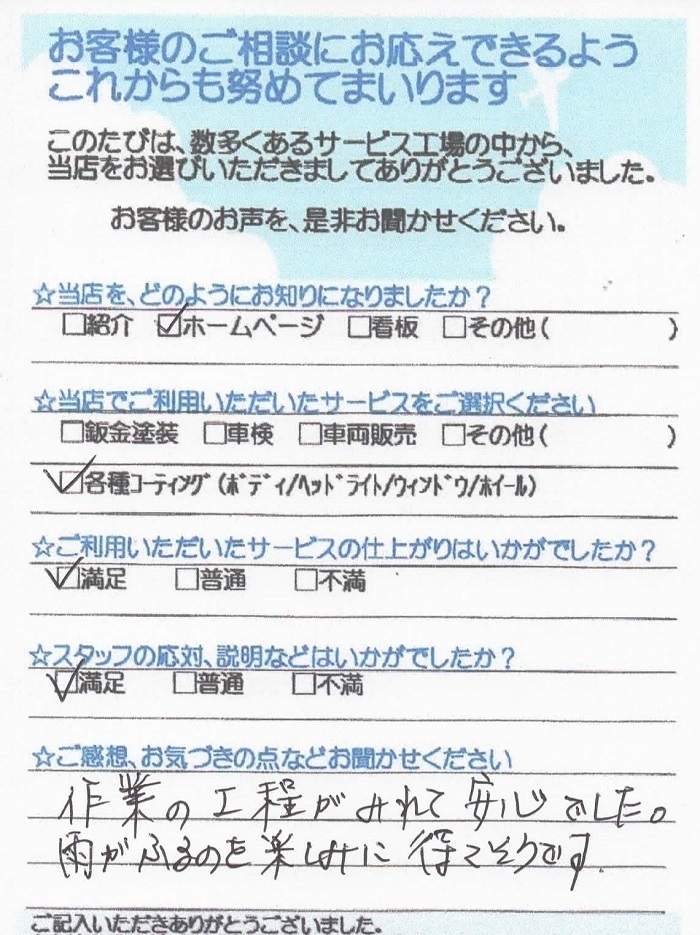 お客様のご相談にお応えできるよう
これからも努めてまいります
このたびは、数多くあるサービス工場の中から、
当店をお選びいただきましてありがとうございました。
お客様のお声を、是非お聞かせください。
☆当店を、どのようにお知りになりましたか？
□紹介 ☑ホームページ □看板 □その他( )
☆当店でご利用いただいたサービスをご選択ください
□鈑金塗装 □車検 □車両販売 □その他( )
☑各種ｺｰﾃｨﾝｸﾞ(ﾎﾞﾃﾞｨ/ﾍｯﾄﾞﾗｲﾄ/ｳｨﾝﾄﾞｳ/ﾎｲｰﾙ)
☆ご利用いただいたサービスの仕上がりはいかがでしたか？
☑満足 □普通 □不満
☆スタッフの応対、説明などはいかがでしたか？
☑満足 □普通 □不満
☆ご感想、お気づきの点などお聞かせください
作業の工程がみれて安心でした。
雨がふるのを楽しみに得てそうです
ご記入いただきありがとうございました。